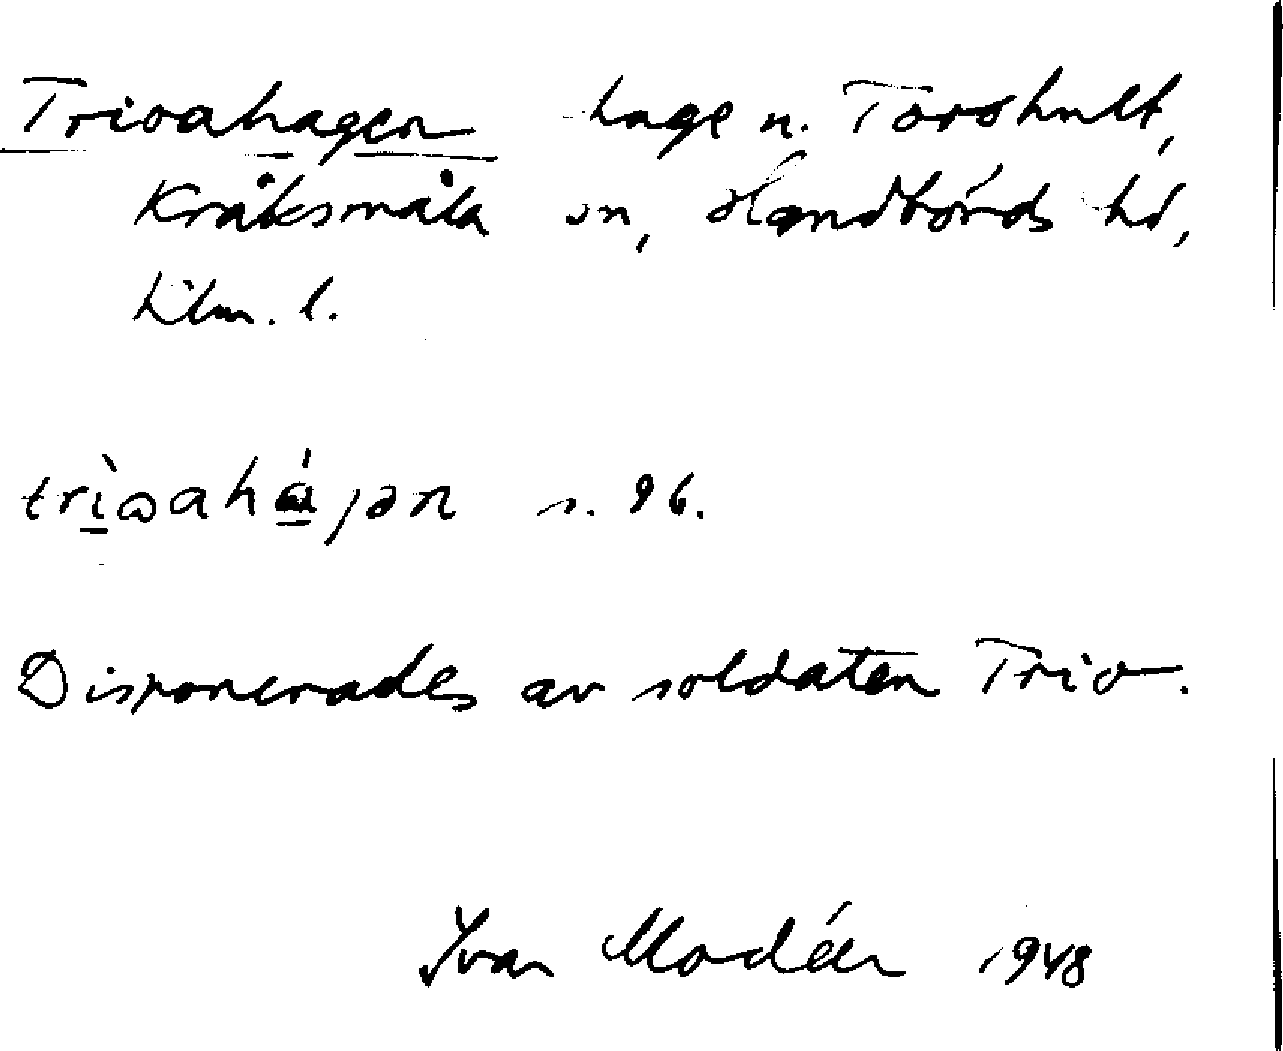 Trioahagen hage n. Torshult,
Kråksmåla sn, Handbörds hd,
Klm. l.
trìɷahájən s. 96.
Disponerades av soldaten Trio.
Ivar Modéer 1948